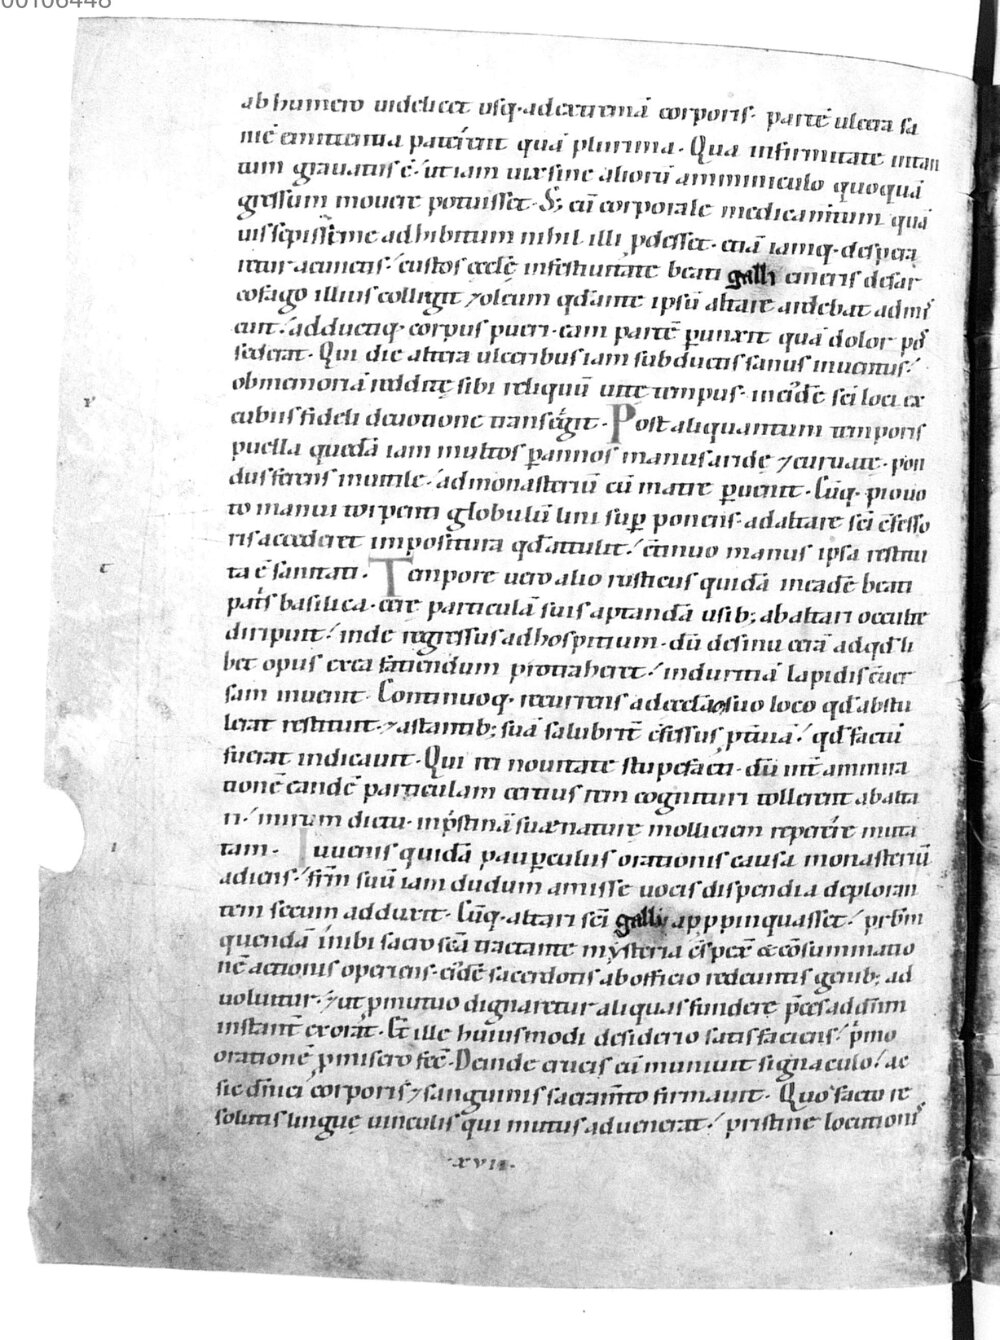 00106448
ab humero uidelicet usq; ad extremā corporis partē ulcera sa
niē emittentia paterent quā plurima. Qua infirmitate intan
tum grauatus ē, ut iam uix sine aliorū amminiculo quoquā
gressum mouere potuisset. S; cū corporale medicamtum quā
uis sepissime adhibitum nihil illi pdesset, etiā iamq; despera
retur a cunctis, custos ecclę infestiuitate beati galli cineris de sar
cofago illius collegit, ⁊ oleum qd ante ipsū altare ardebat admis
cuit, adductiq; corpus pueri, eam partē punxit quā dolor pos
sederat. Qui die altera ulceribus iam subductis sanus inuentus,
ob memoriā redditę sibi reliquū uitę tempus, in eidē sci loci ex
cubiis fideli deuotione transegit. Post aliquantum temporis
puella quedā iam multos p annos manus aridę ⁊ curuatę, pon
dus ferens inutile, ad monasteriū cū matre puenit. Cūq; prouo
to manui torpenti globulū lini sup ponens, ad altare sci cfesso
ris accederet impositura qd attulit, ctinuo manus ipsa restitu
ta ē sanitati. Tempore uero alio rusticus quidā in eadē beati
patris basilica, cere particulā suis aptandā usib; ab altari occulte
diripuit, inde regressus ad hospitium, dū de sinu cerā ad qdli
bet opus ex ea faciendum protraheret, in duritiā lapidis cuer
sam inuenit. Continuoq; recurrens ad ecclam suo loco qd abstu
lerat restituit, ⁊ astantib; suā salubrit cfessus ptuiā, qd factū
fuerat indicauit. Qui rei nouitate stupefacti, dū int ammira
tionē eandē particulam certius rem cognituri tollerent ab alta
ri, mirum dictu, in pstinā suae naturę molliciem reperere muta
tam. Iuuenis quidā paupculus orationis causa monasteriū
adiens, frm suū iam dudum amissę uocis dispendia deploran
tem secum adduxit. Cūq; altari sci galli appropinquasset, prbm
quendā inibi sacro sca tractante mysteria cspex & csummatio
nē actionis operiens, eidē sacerdotis ab officio redeuntis genib; ad
uoluitur, ⁊ ut p mutuo dignaretur aliquas fundere pces ad dnm
instant exorat. Et ille huiusmodi desiderio satisfaciens, pmo
orationē p misero fec. Deinde crucis eū muniuit signaculo, ac
sic dnici corporis ⁊ sanguinis sacramto firmauit. Quo facto re
solutis linguę uinculis qui mutus aduenerat, pristine locutionis
·XVII·